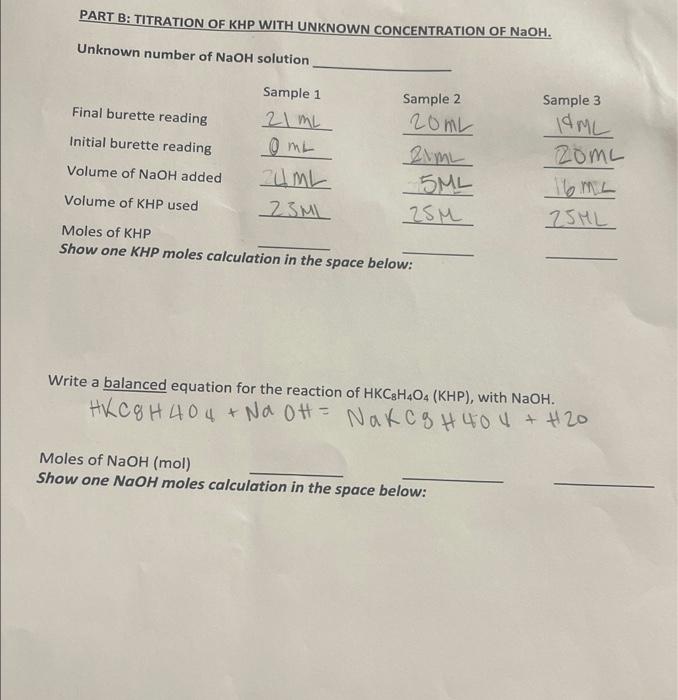 PART B: TITRATION OF KHP WITH UNKNOWN CONCENTRATION OF NaOH.
Unknown number of NaOH solution
Sample 1 Sample 2 Sample 3
Final burette reading 21 mL 20mL 14mL
Initial burette reading 0 mL 21mL 20mL
Volume of NaOH added mL 5ML 16mL
Volume of KHP used 25ML 25M 25ML
Moles of KHP
Show one KHP moles calculation in the space below:
Write a balanced equation for the reaction of HKC₈H₄O₄ (KHP), with NaOH.
HKC8H4O4 + NaOH = NaKC8H4O4 + H2O
Moles of NaOH (mol)
Show one NaOH moles calculation in the space below: